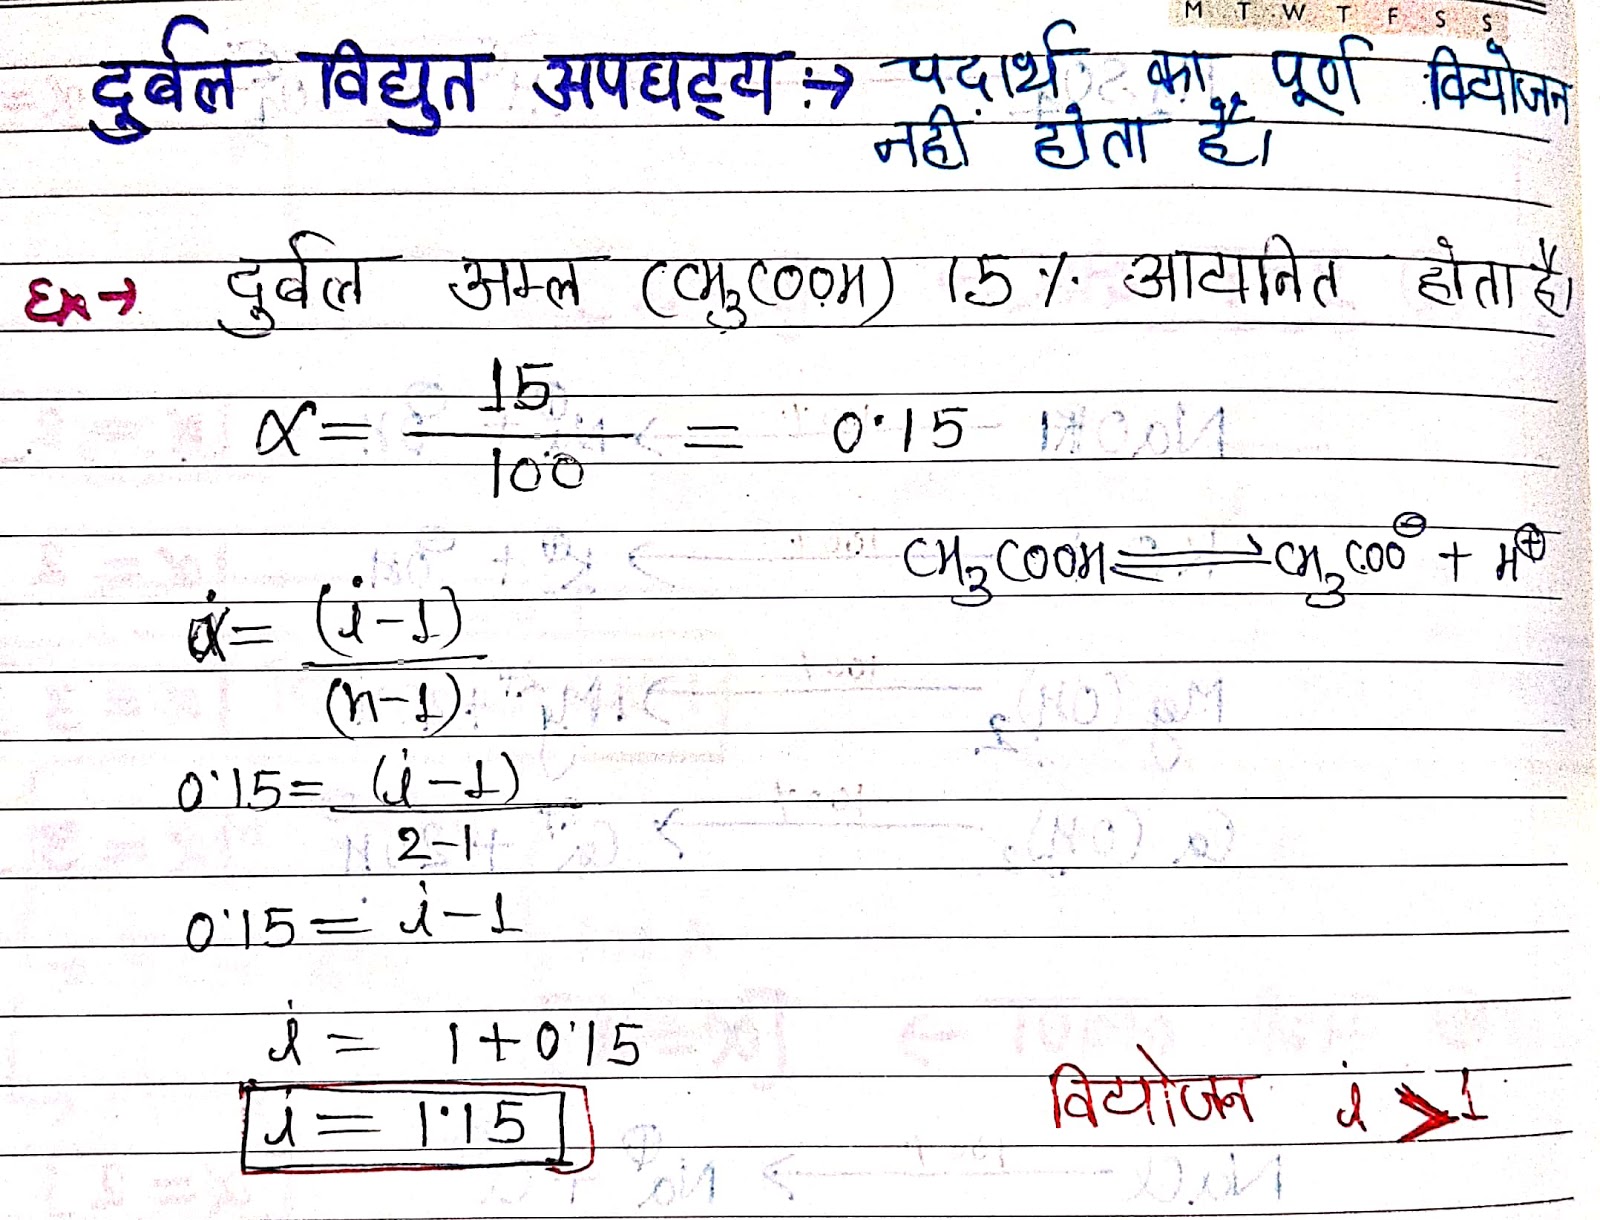 M T W T F S S
दुर्बल विद्युत अपघट्य :→ पदार्थ का पूर्ण वियोजन
नहीं होता है।
Ex→ दुर्बल अम्ल (CH₃COOH) 15 % आयनित होता है।
α = 15/100 = 0.15
CH₃COOH ⇌ CH₃COO⊖ + H⊕
α = (i-1)/(n-1)
0.15 = (i-1)/2-1
0.15 = i-1
i = 1+0.15
i = 1.15
वियोजन i > 1